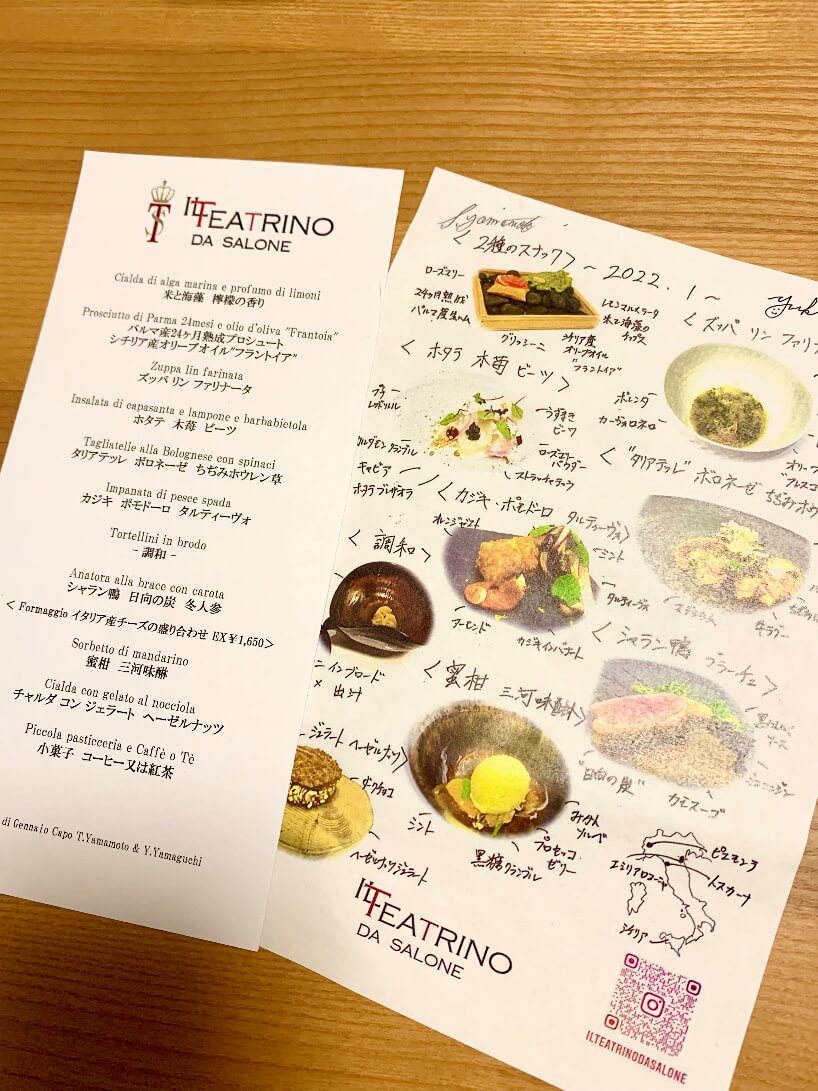 IL TEATRINO
DA SALONE
Cialda di alga marina e profumo di limoni
米と海藻 檸檬の香り
Prosciutto di Parma 24mesi e olio d'oliva "Frantoia"
パルマ産24ヶ月熟成プロシュート
シチリア産オリーブオイル"フラントイア"
Zuppa lin farinata
ズッパ リン ファリナータ
Insalata di capasanta e lampone e barbabietola
ホタテ 木苺 ビーツ
Tagliatelle alla Bolognese con spinaci
タリアテッレ ボロネーゼ ちぢみホウレン草
Impanata di pesce spada
カジキ ポモドーロ タルティーヴォ
Tortellini in brodo
- 調和 -
Anatora alla brace con carota
シャラン鴨 日向の炭 冬人参
< Formaggio イタリア産チーズの盛り合わせ EX￥1,650>
Sorbetto di mandarino
蜜柑 三河味醂
Cialda con gelato al nocciola
チャルダ コン ジェラート ヘーゼルナッツ
Piccola pasticceria e Caffè o Tè
小菓子 コーヒー又は紅茶
di Gennaio Capo T.Yamamoto & Y.Yamaguchi
<2種のスナック> ~ 2022. 1 ~
ローズマリー
24ヶ月熟成
パルマ産生ハム
グリッシーニ
シチリア産
オリーブオイル
"フラントイア"
レモンマルメラータ
米と海藻の
チップス
<ズッパ リン ファリナ
ポレンタ
カーヴォロネロ
<ホタテ 木苺 ビーツ>
うずまき
ビーツ
ローズマリー
パウダー
ストラッチャテッラ
カルダモンクランブル
キャビア
ホタテブレザオラ
<"タリアテッレ" ボロネーゼ ちぢみホウ
牛ラグー
<カジキ・ポモドーロ タルティーヴォ>
オレンジゼスト
ミント
タルティーヴォ
カジキインパナート
アーモンド
<調和>
ニ インブロード
× 出汁
<シャラン鴨 ブラーチェ>
"日向の炭"
カモスーゴ
<蜜柑 三河味醂>
ミント
黒糖クランブル
プロセッコ
ゼリー
みかん
ソルベ
ジェラート ヘーゼルナッツ>
ダークチョコ
ヘーゼルナッツジェラート
ピエモンテ
トスカーナ
エミリアロマーニャ
シチリア
IL TEATRINO
DA SALONE
ILTEATRINODASALONE